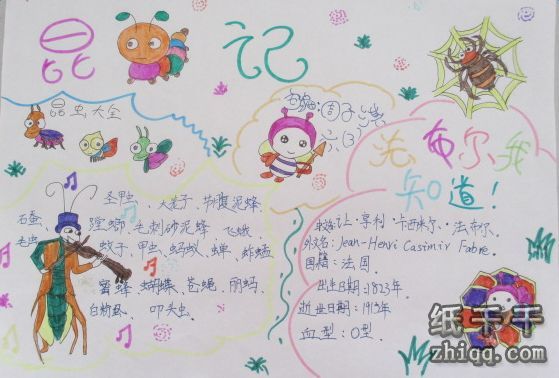 昆 记
昆虫大全
六(3)
法布尔,我
知道!
圣甲
石蚕
毛虫
毛刺砂泥蜂 飞蛾
蚊子、甲虫、蚂蚁、蝉、蚱蜢
蜜蜂、蝴蝶、苍蝇、
叩头虫
中文名:让·亨利·卡西米尔·法布尔
外文名:Jean-Henri Casimir Fabre.
国籍:法国
出生日期:1823年
逝世日期:1915年
血型:O型
纸卡千
zhiqq.com